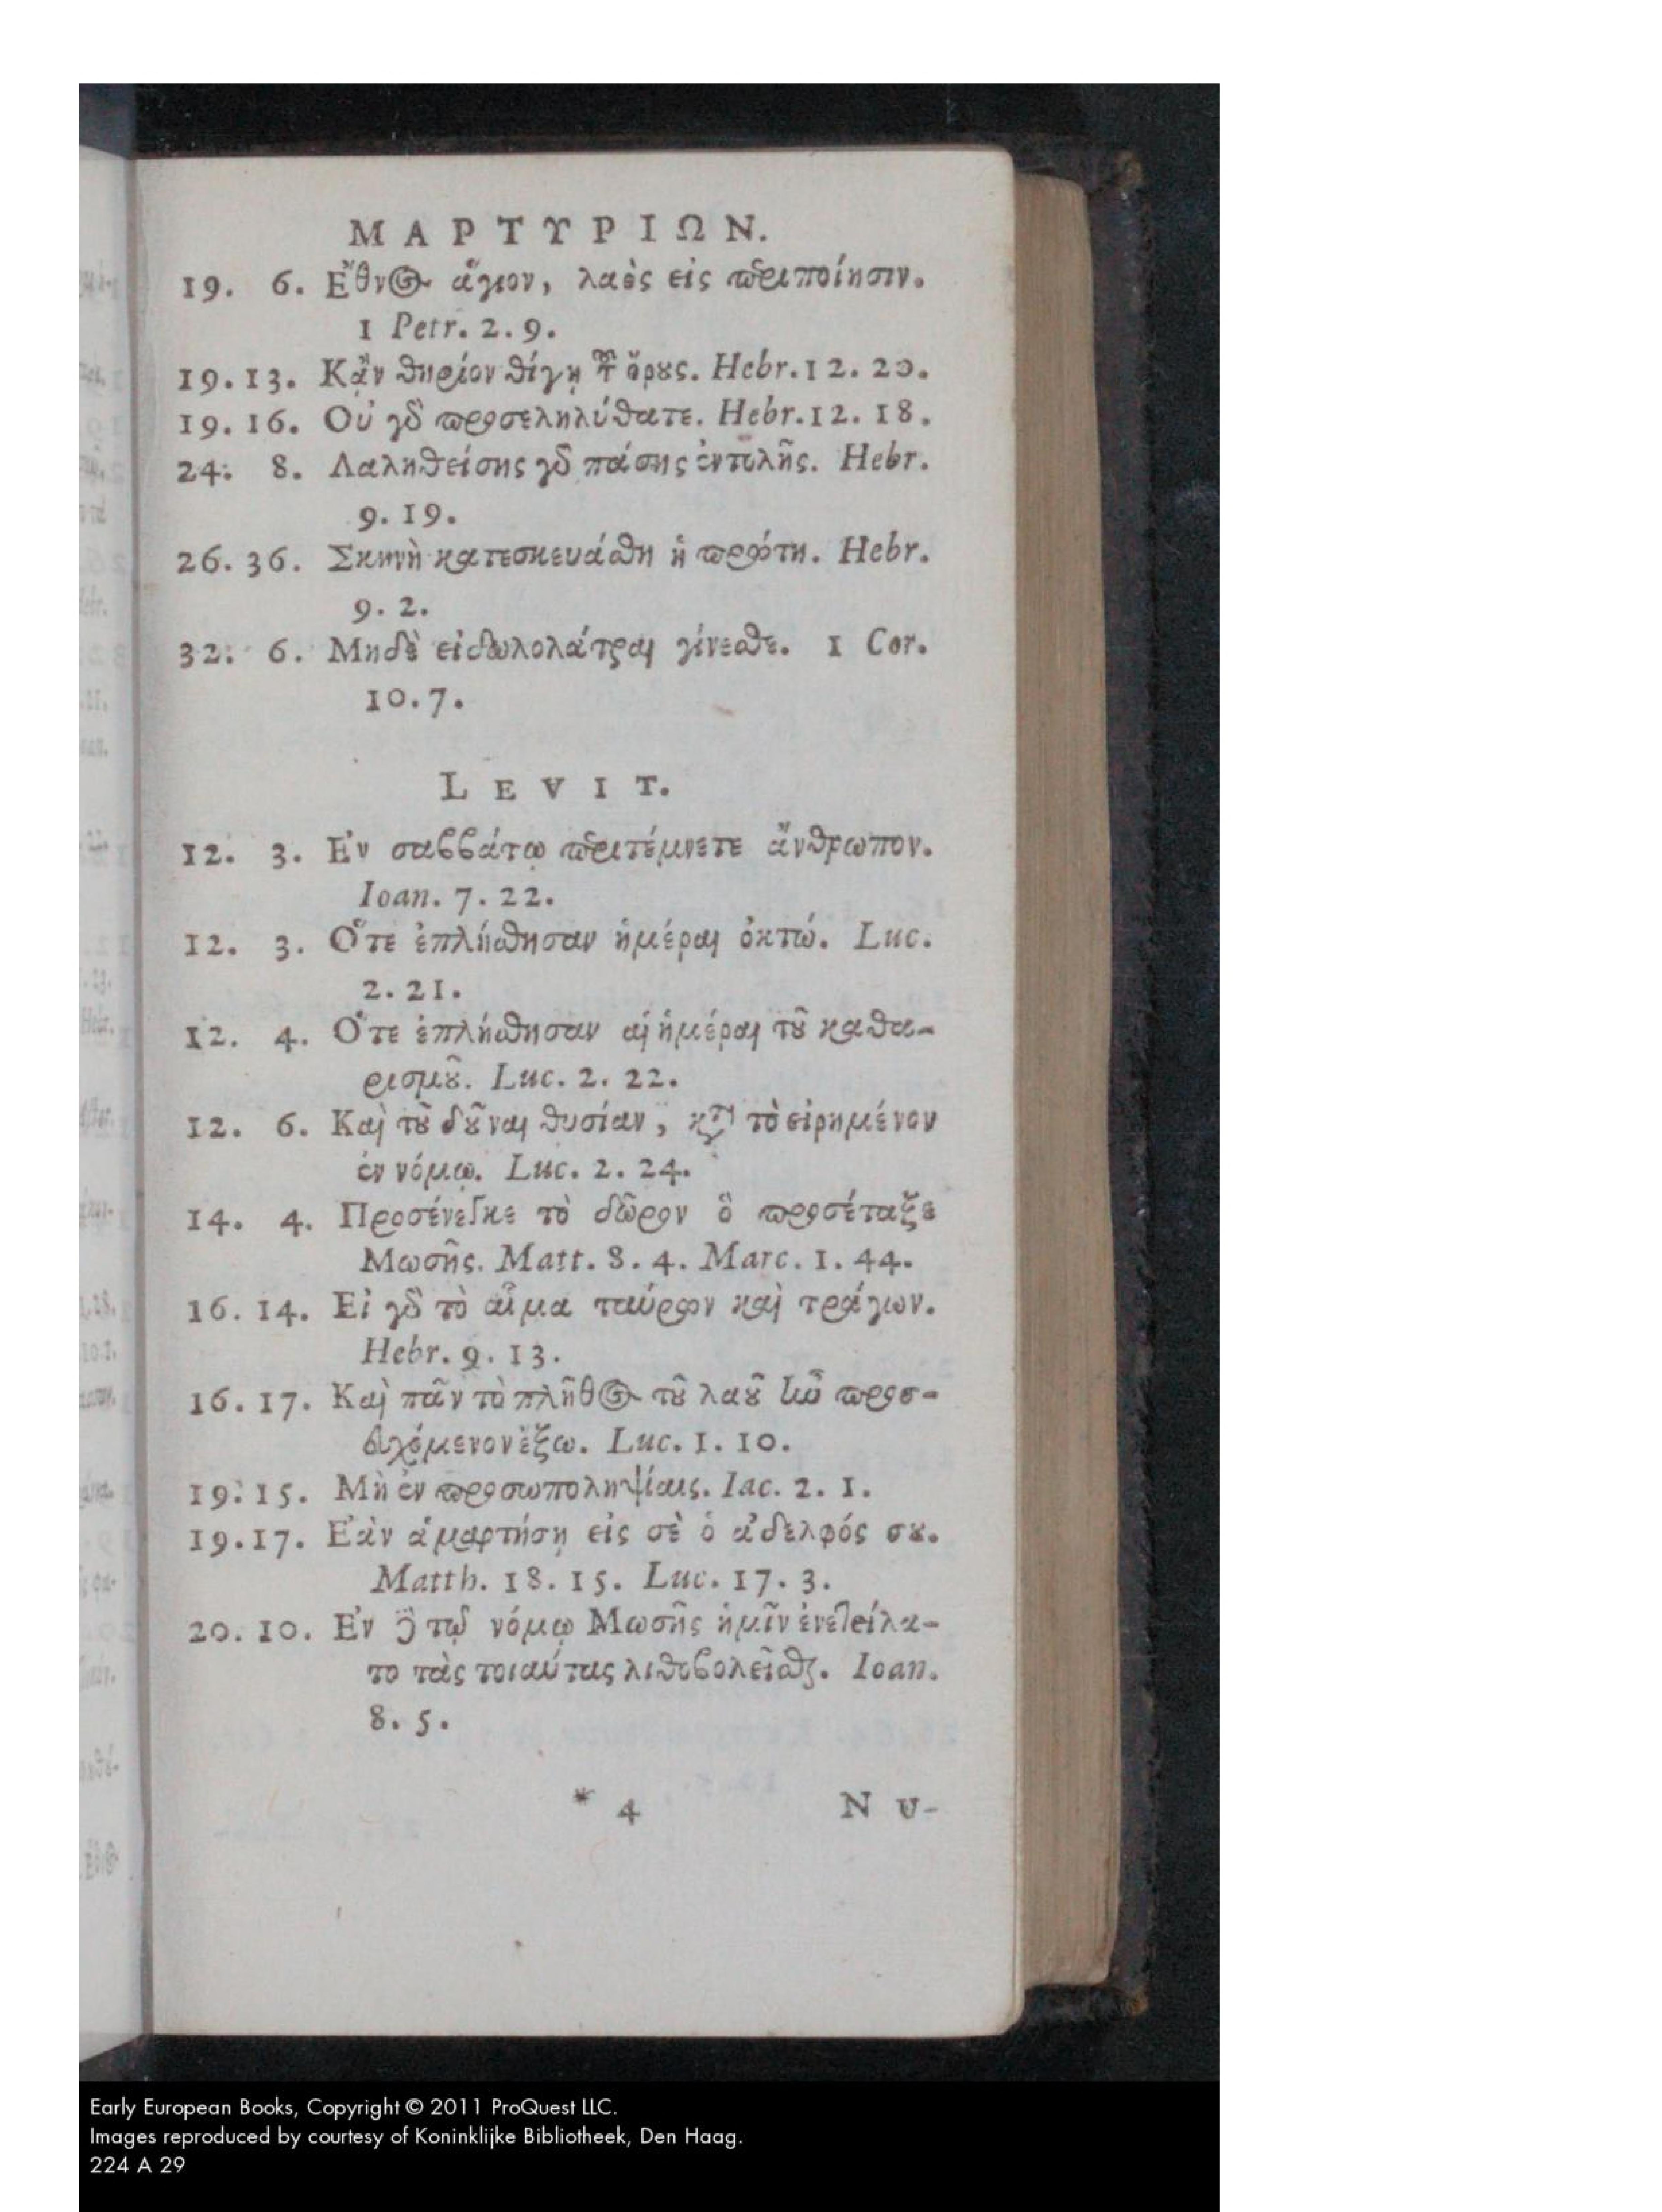 ΜΑΡΤΥΡΙΩΝ.
19. 6. Ἔθνος ἅγιον, λαὸς εἰς περιποίησιν.
1 Petr. 2. 9.
19. 13. Κᾂν θηρίον θίγῃ τοῦ ὄρους. Hebr. 12. 20.
19. 16. Οὐ γὰρ προσεληλύθατε. Hebr. 12. 18.
24. 8. Λαληθείσης γὰρ πάσης ἐντολῆς. Hebr.
9. 19.
26. 36. Σκηνὴ κατεσκευάσθη ἡ πρώτη. Hebr.
9. 2.
32. 6. Μηδὲ εἰδωλολάτραι γίνεσθε. 1 Cor.
10. 7.
LEVIT.
12. 3. Ἐν σαββάτῳ περιτέμνετε ἄνθρωπον.
Ioan. 7. 22.
12. 3. Ὅτε ἐπλήσθησαν ἡμέραι ὀκτώ. Luc.
2. 21.
12. 4. Ὅτε ἐπλήσθησαν αἱ ἡμέραι τοῦ καθα-
ρισμοῦ. Luc. 2. 22.
12. 6. Καὶ τοῦ δοῦναι θυσίαν, κατὰ τὸ εἰρημένον
ἐν νόμῳ. Luc. 2. 24.
14. 4. Προσένεγκε τὸ δῶρον ὃ προσέταξε
Μωσῆς. Matt. 8. 4. Marc. 1. 44.
16. 14. Εἰ γὰρ τὸ αἷμα ταύρων καὶ τράγων.
Hebr. 9. 13.
16. 17. Καὶ πᾶν τὸ πλῆθος τοῦ λαοῦ ἦν προσ-
ευχόμενον ἔξω. Luc. 1. 10.
19. 15. Μὴ ἐν προσωποληψίαις. Iac. 2. 1.
19. 17. Ἐὰν ἁμαρτήσῃ εἰς σὲ ὁ ἀδελφός σου.
Matth. 18. 15. Luc. 17. 3.
20. 10. Ἐν δὲ τῷ νόμῳ Μωσῆς ἡμῖν ἐνετείλα-
το τὰς τοιαύτας λιθοβολεῖσθαι. Ioan.
8. 5.
* 4 NU-
Early European Books, Copyright © 2011 ProQuest LLC.
Images reproduced by courtesy of Koninklijke Bibliotheek, Den Haag.
224 A 29